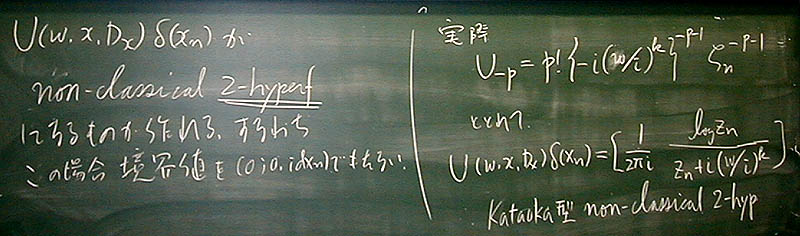 U(w, x, Dx) δ(xn) が
non-classical 2-hyperf
になるものが作れる. すなわち
この場合 境界値を (0; 0, idxn) でもたない.
実際
U_{-p} = p! {-i(w/i)^k}^{-p-1} ζ_n^{-p-1}
ととれて.
U(w, x, Dx) δ(xn) = [ 1/2πi log Zn / Zn + i(w/i)^k ]
Kataoka型 non-classical 2-hyp